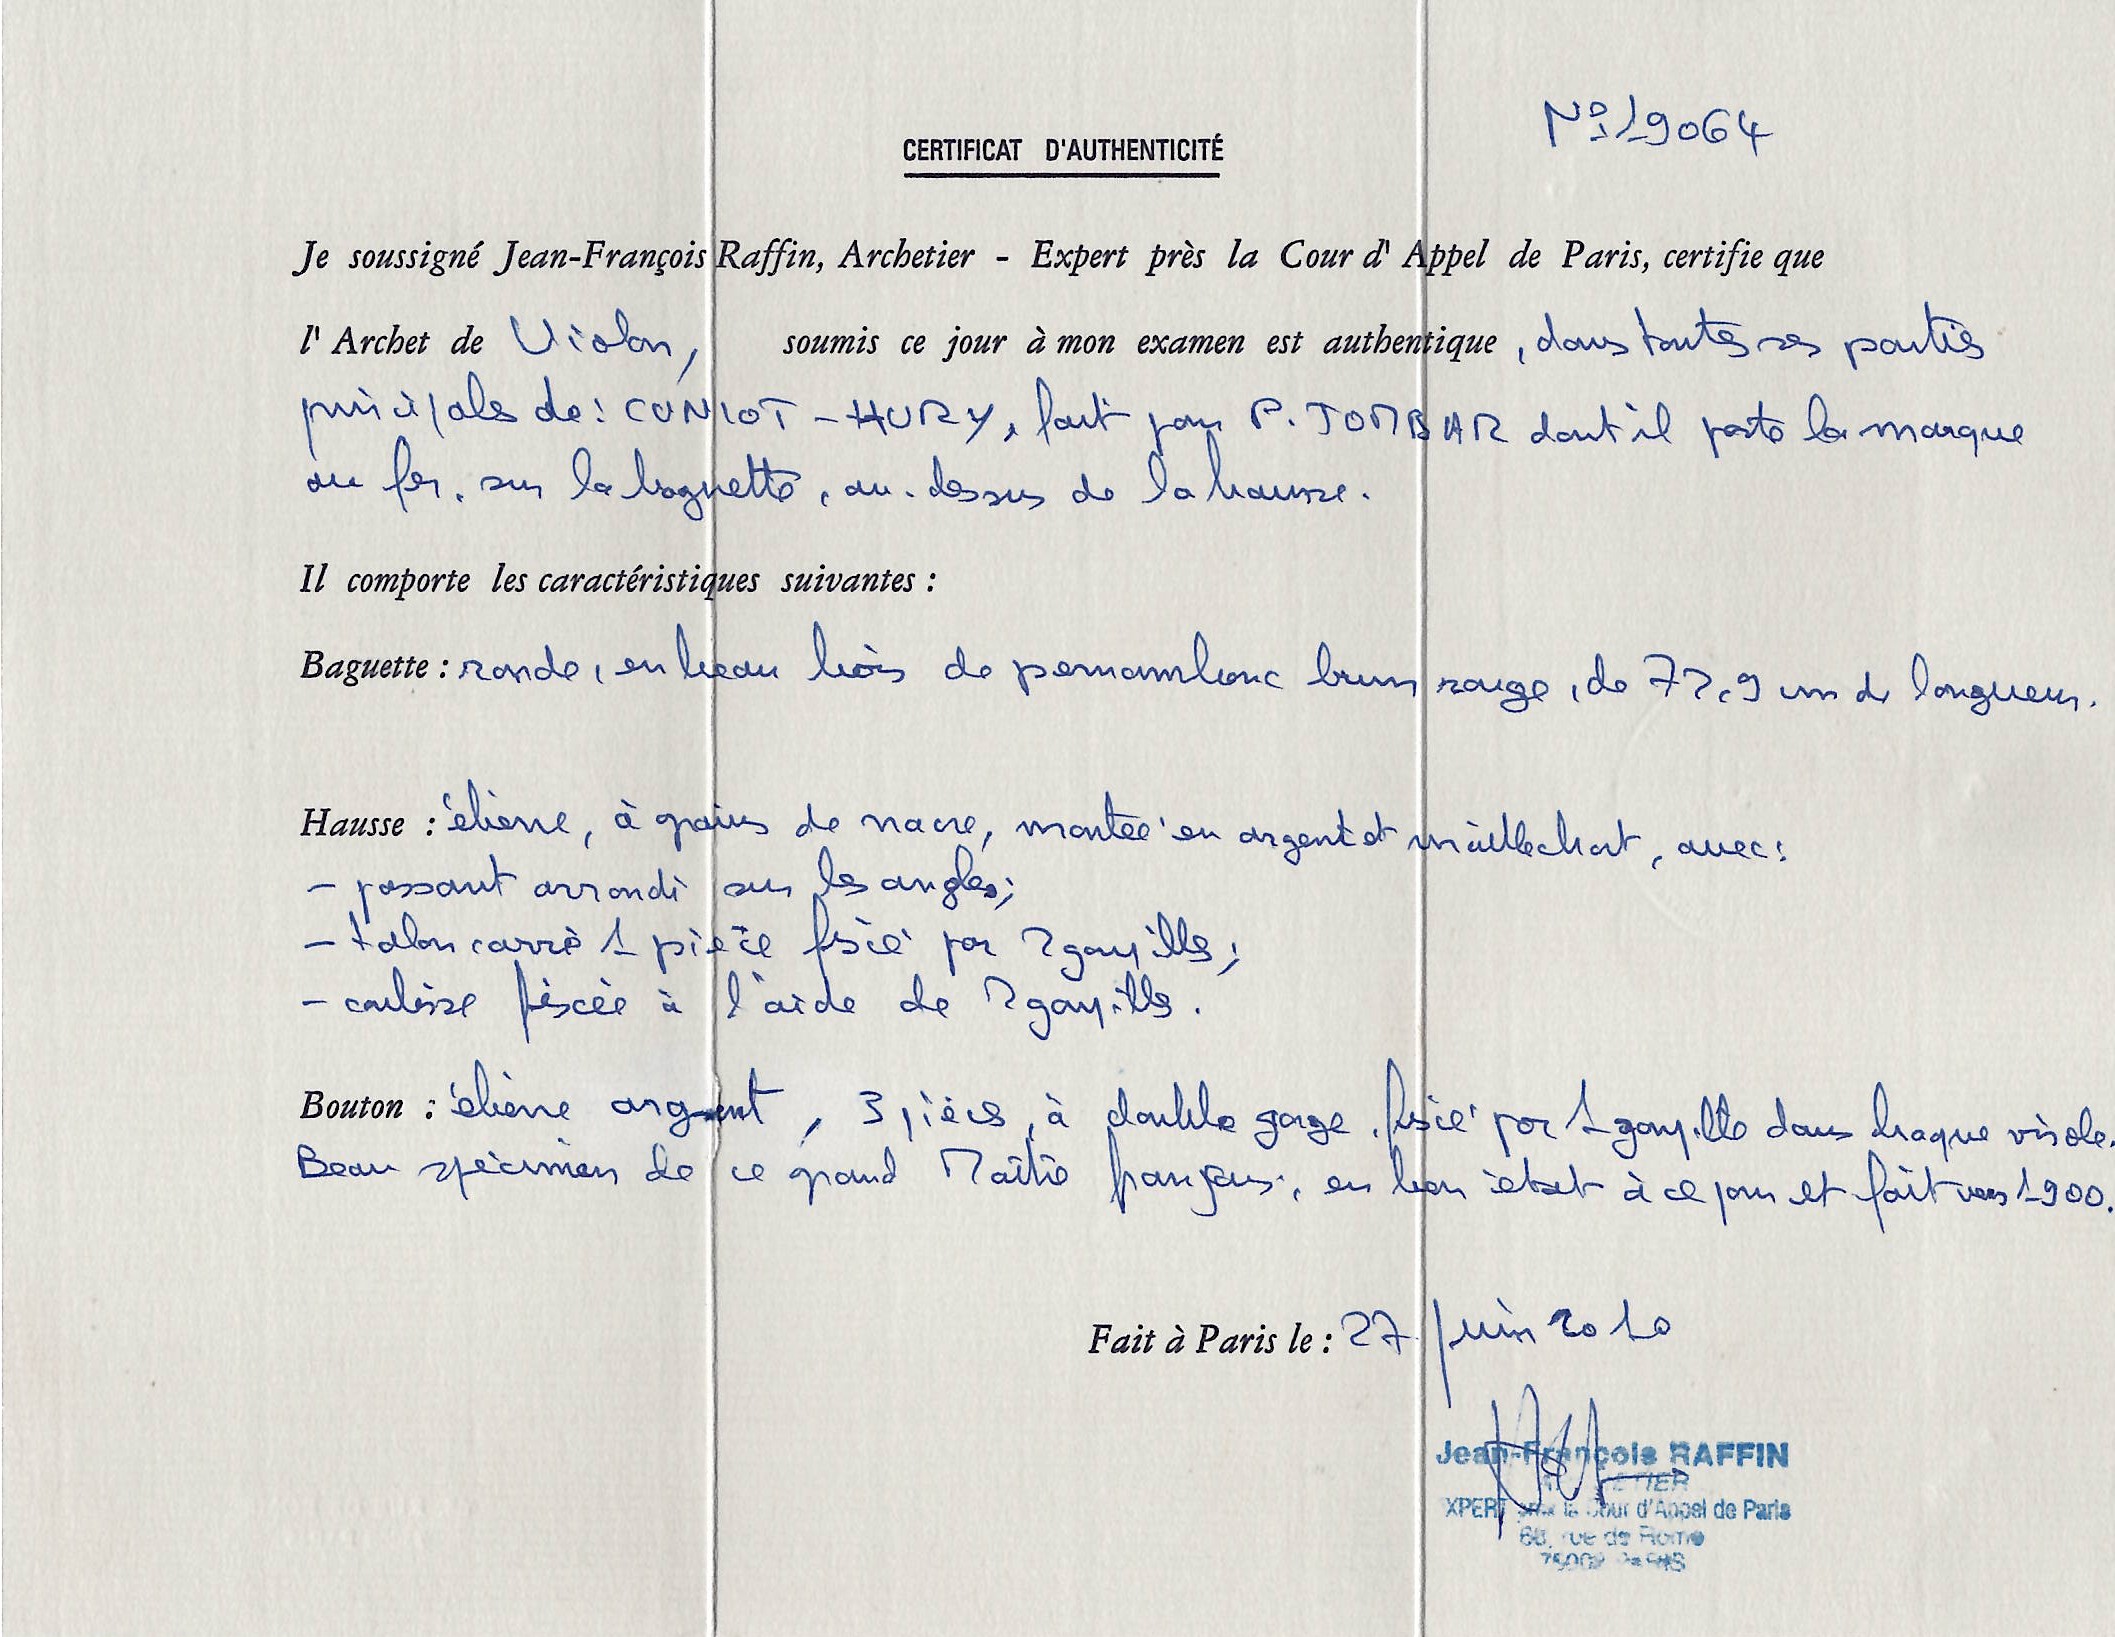 Nº 19064
CERTIFICAT D'AUTHENTICITÉ
Je soussigné Jean-François Raffin, Archetier - Expert près la Cour d'Appel de Paris, certifie que
l'Archet de Violon, soumis ce jour à mon examen est authentique, dans toutes ses parties
principales de: CUNIOT-HURY, fait par P. JOMBAR dont il porte la marque
au fer, sur la baguette, au-dessus de la hausse.
Il comporte les caractéristiques suivantes :
Baguette : ronde, en beau bois de pernambouc brun rouge, de 72,9 cm de longueur.
Hausse : ébène, à grains de nacre, montée en argent et maillechort, avec:
- passant arrondi sur les angles;
- talon carré 1 pièce fixé par 2 goupilles;
- coulisse fixée à l'aide de 2 goupilles.
Bouton : ébène argent, 3 pièces, à double gorge, fixé par 1 goupille dans chaque virole.
Beau spécimen de ce grand Maître français, en bon état à ce jour et fait vers 1900.
Fait à Paris le : 27 juin 2010
Jean-François RAFFIN
XPERT la Cour d'Appel de Paris
68, rue de Rome